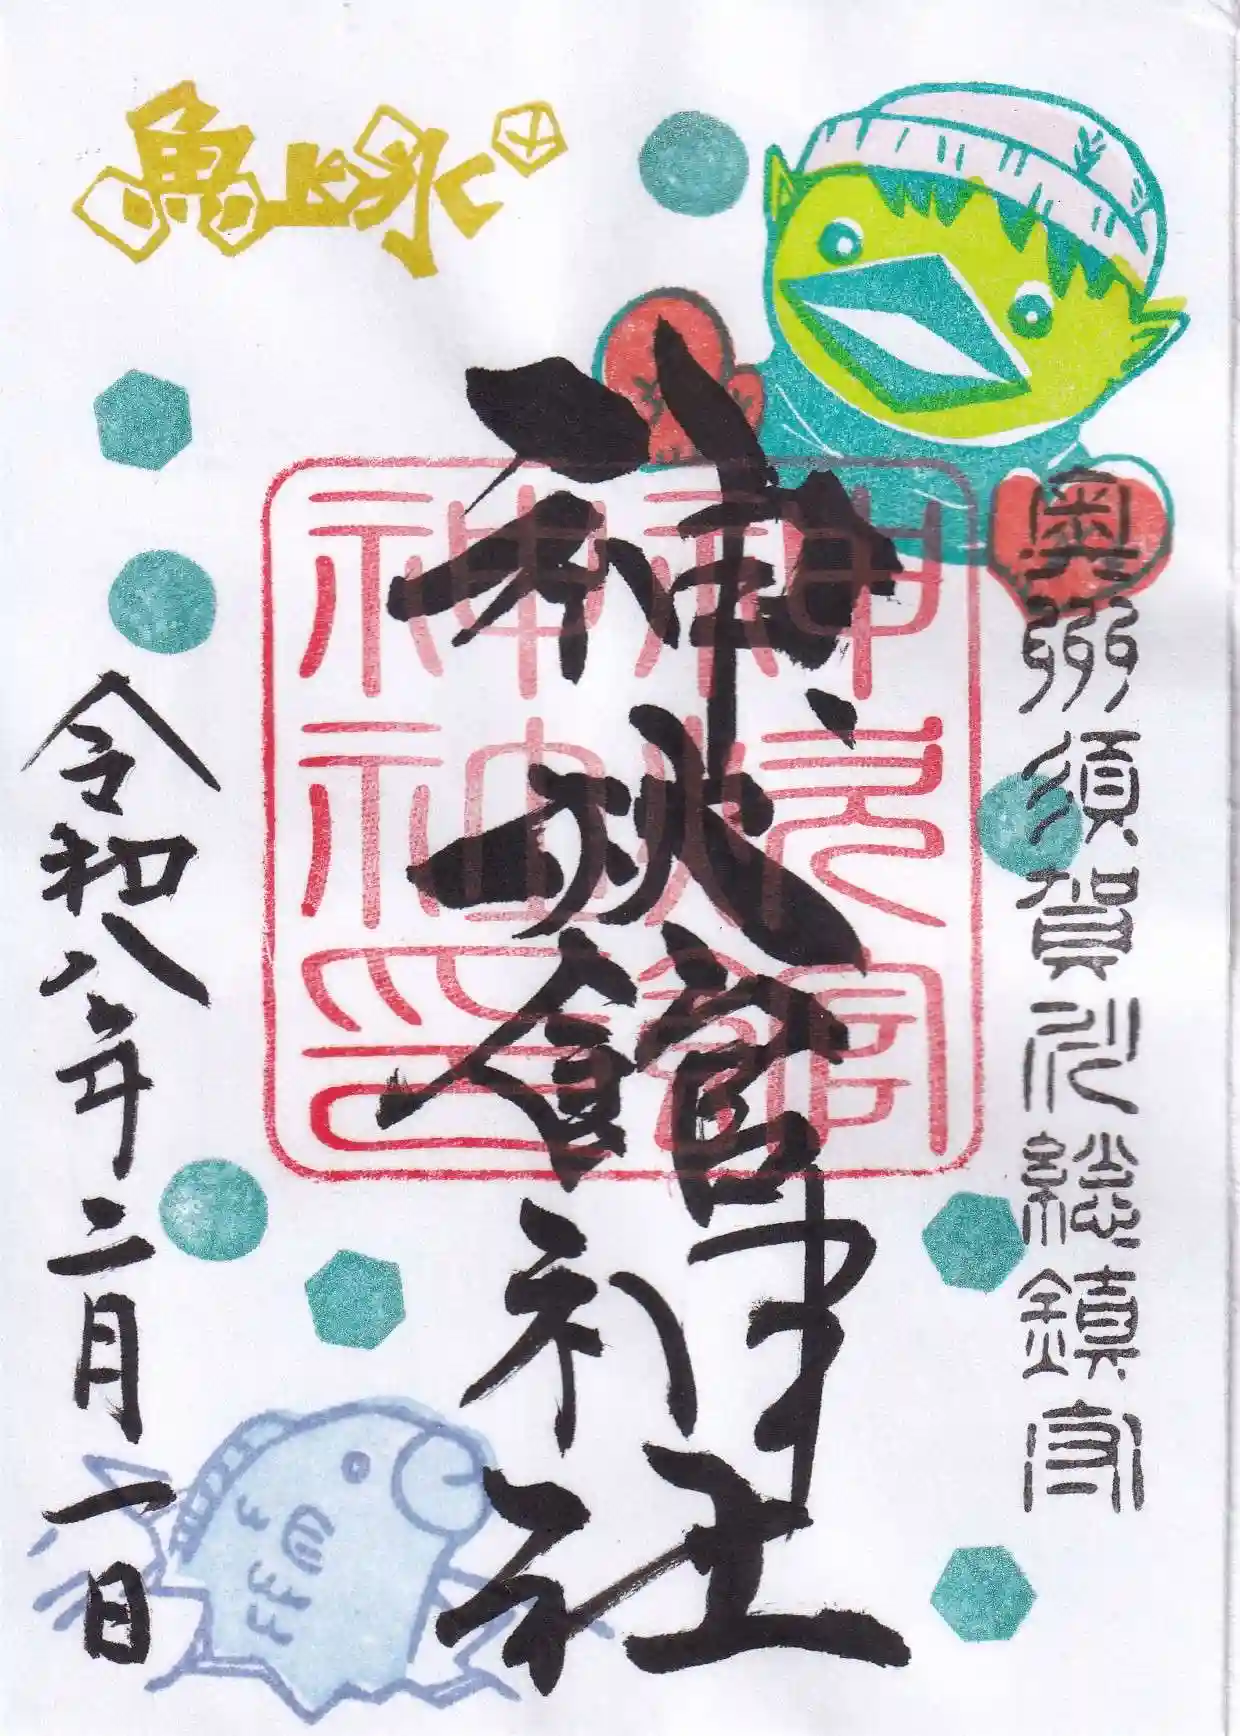 奥州須賀川総鎮守
神炊館神社
神炊館神社印
令和八年二月一日
魚上氷